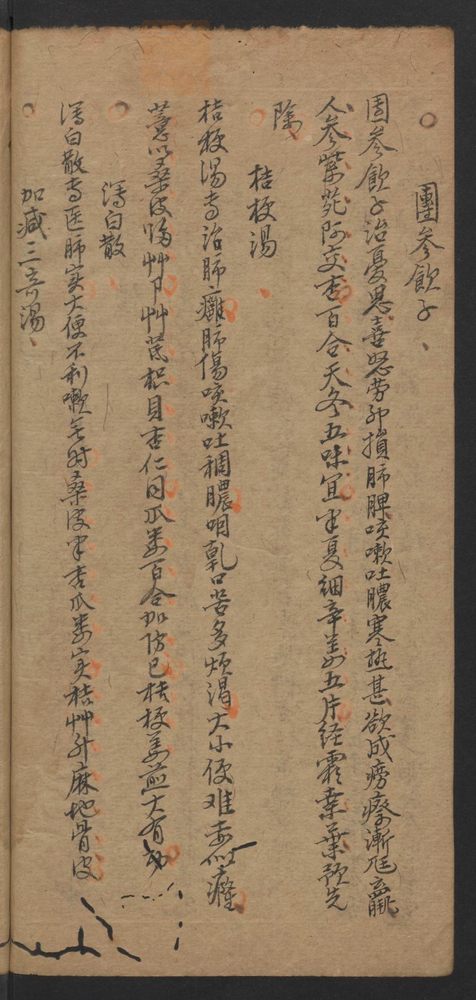 團參飲子
團參飲子治憂思喜怒勞卻損肺脾咳嗽吐膿寒熱甚欲成癆瘵漸尪羸
人參紫苑阿交杏百合天冬五味宜半夏細辛姜五片經霜桑葉預先
除
桔梗湯
桔梗湯專治肺癰肺傷咳嗽吐稠膿咽乾口苦多煩渴大小便难赤似癃
薏苡桑皮歸艸卩艸芪枳貝杏仁同瓜蒌百合加防己桔梗姜煎大有功
瀉白散
瀉白散專医肺实大便不利嗽无时桑皮半杏瓜蒌实桔艸升麻地骨皮
加减三奇湯